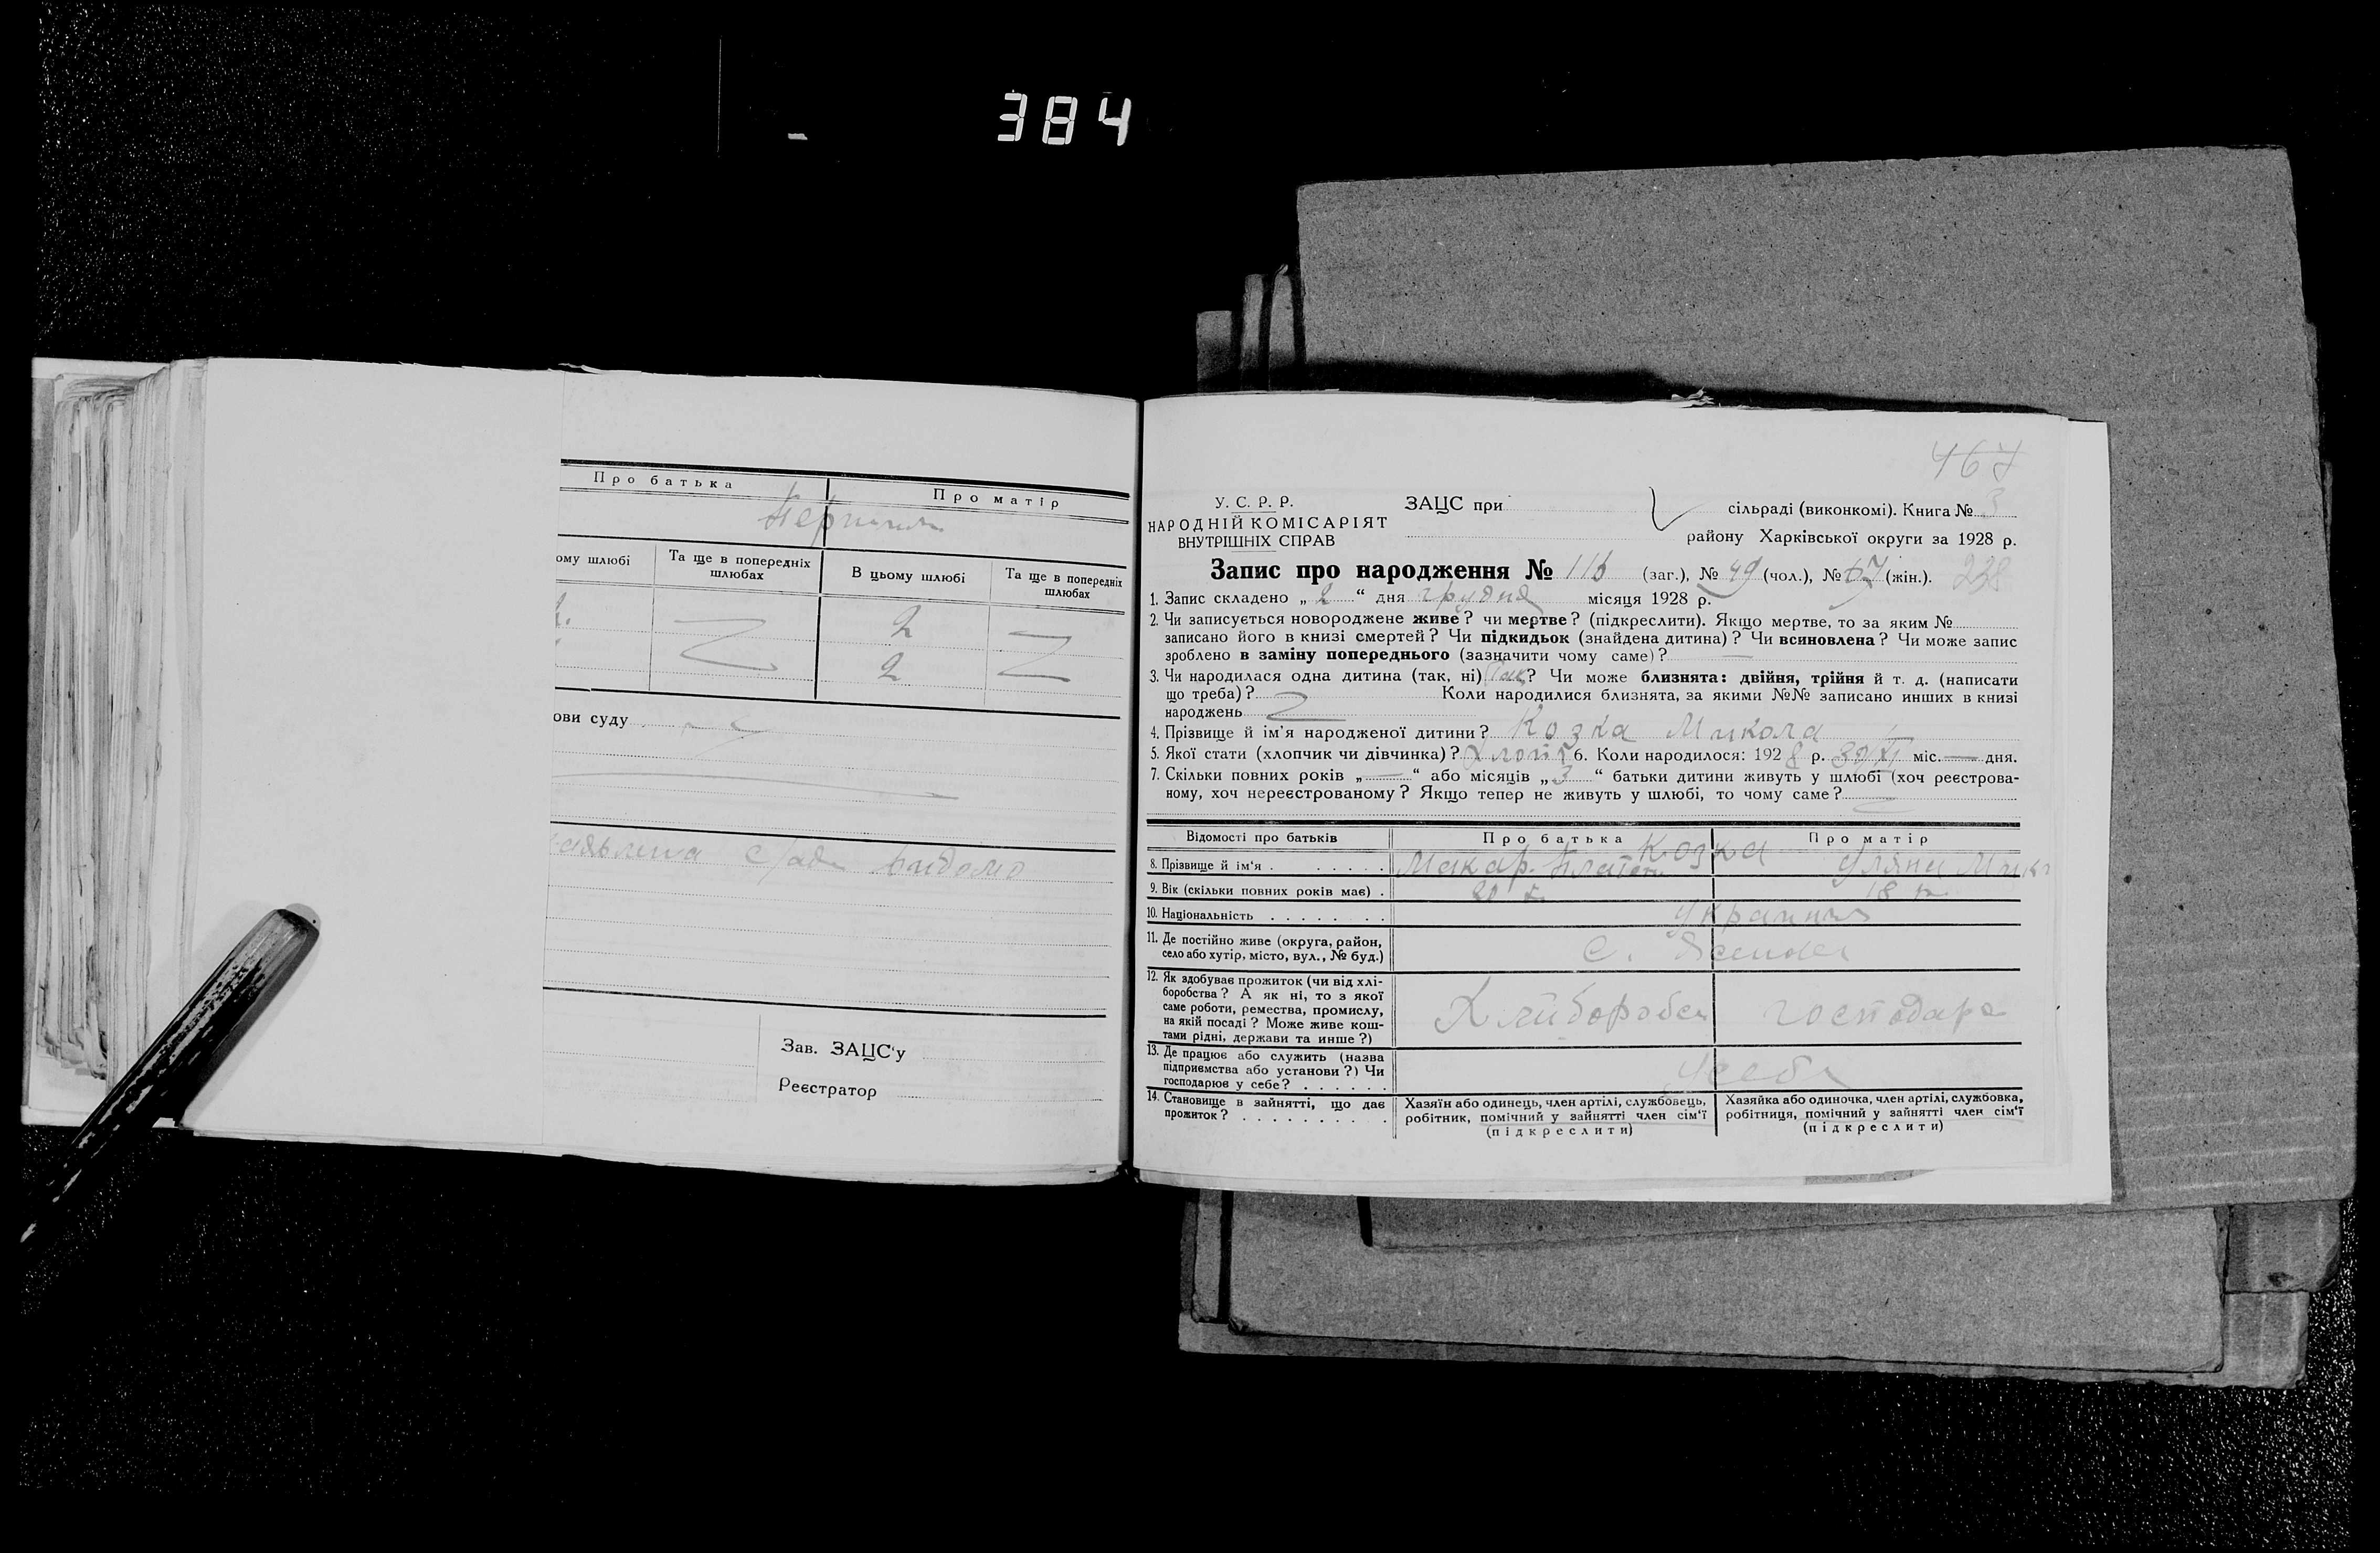 384
Про батька Про матір
ому шлюбі Та ще в попередніх шлюбах В цьому шлюбі Та ще в попередніх шлюбах
2
2
ови суду
Зав. ЗАЦС'у
Реєстратор
467
У. С. Р. Р.
НАРОДНІЙ КОМІСАРІЯТ
ВНУТРІШНІХ СПРАВ
ЗАЦС при сільраді (виконкомі). Книга № 3
району Харківської округи за 1928 р.
Запис про народження № (заг.), № 49 (чол.), № 67 (жін.). 238
1. Запис складено „ 2 “ дня грудня місяця 1928 р.
2. Чи записується новороджене живе? чи мертве? (підкреслити). Якщо мертве, то за яким №
записано його в книзі смертей? Чи підкидьок (знайдена дитина)? Чи всиновлена? Чи може запис
зроблено в заміну попереднього (зазначити чому саме)? —
3. Чи народилася одна дитина (так, ні) Так? Чи може близнята: двійня, трійня й т. д. (написати
що треба)? Коли народилися близнята, за якими №№ записано инших в книзі
народжень
4. Прізвище й ім'я народженої дитини? Козка Микола
5. Якої стати (хлопчик чи дівчинка)? 6. Коли народилося: 1928 р. 30/XI міс. — дня.
7. Скільки повних років „ — “ або місяців „ 3 “ батьки дитини живуть у шлюбі (хоч реєстрова-
ному, хоч нереєстрованому? Якщо тепер не живуть у шлюбі, то чому саме?
Відомості про батьків Про батька Про матір
Козка
8. Прізвище й ім'я Макар. Платон. Уляна
9. Вік (скільки повних років має) 20 18
10. Національність
11. Де постійно живе (округа, район,
село або хутір, місто, вул., № буд.) с.
12. Як здобуває прожиток (чи від хлі-
боробства? А як ні, то з якої
саме роботи, ремества, промислу,
на якій посаді? Може живе кош-
тами рідні, держави та инше?)
13. Де працює або служить (назва
підприємства або установи?) Чи
господарює у себе? у себе
14. Становище в зайнятті, що дає
прожиток?
Хазяїн або одинець, член артілі, службовець,
робітник, помічний у зайнятті член сім'ї
(підкреслити)
Хазяйка або одиночка, член артілі, службовка,
робітниця, помічний у зайнятті член сім'ї
(підкреслити)